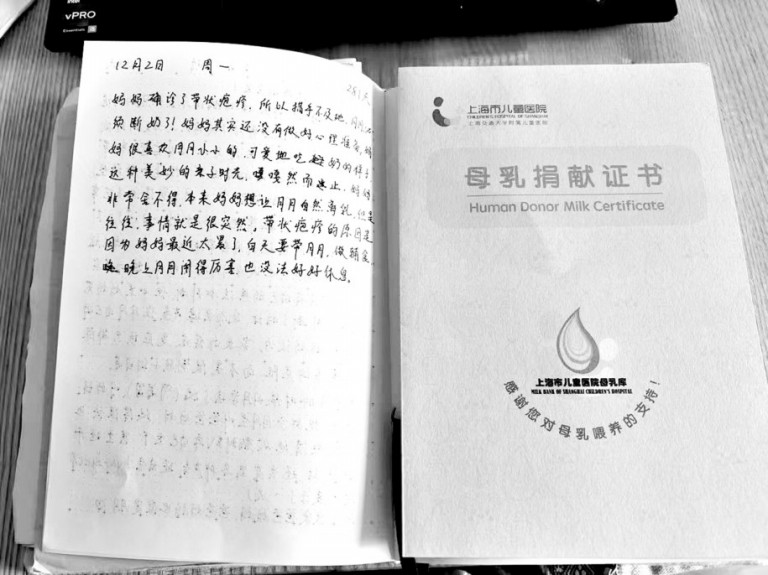 vPRO
Essentials
12月2日 周一
妈妈确诊了带状疱疹，所以措手不及地，月月
续断奶了！妈妈其实还没有做好心理准备，妈
妈很喜欢月月小小的，可爱地吃奶的样子
这种美妙的亲子时光，嘎然而止，妈妈
非常舍不得，本来妈妈想让月月自然离乳，但是
往往，事情就是很突然，带状疱疹的原因是
因为妈妈最近太累了，白天要带月月，做
晚上月月闹得厉害，也没法好好休息。
上海市儿童医院
CHILDREN'S HOSPITAL OF SHANGHAI
上海交通大学附属儿童医院
母乳捐献证书
Human Donor Milk Certificate
上海市儿童医院母乳库
MILK BANK OF SHANGHAI CHILDREN'S HOSPITAL
感谢您对母乳喂养的支持！